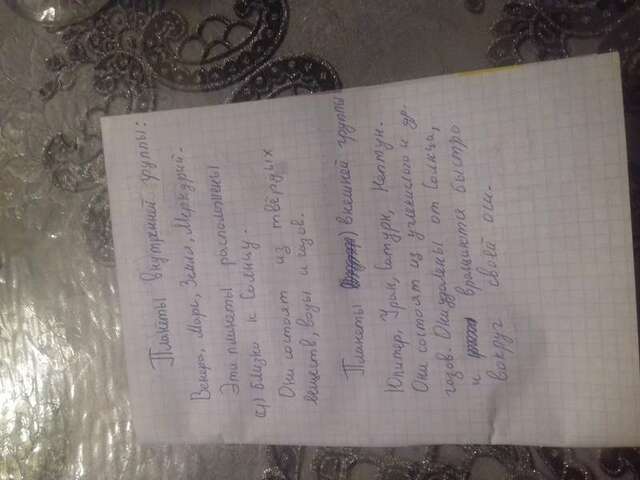 Планеты внутренней группы:
Венера, Марс, Земля, Меркурий.
Эти планеты расположены
близко к Солнцу.
Они состоят из твёрдых
веществ, воды и газов.
Планеты внешней группы
Юпитер, Уран, Сатурн, Нептун.
Они состоят из углекислого и др.
газов. Они удалены от Солнца,
и вращаются быстро
вокруг своей оси.